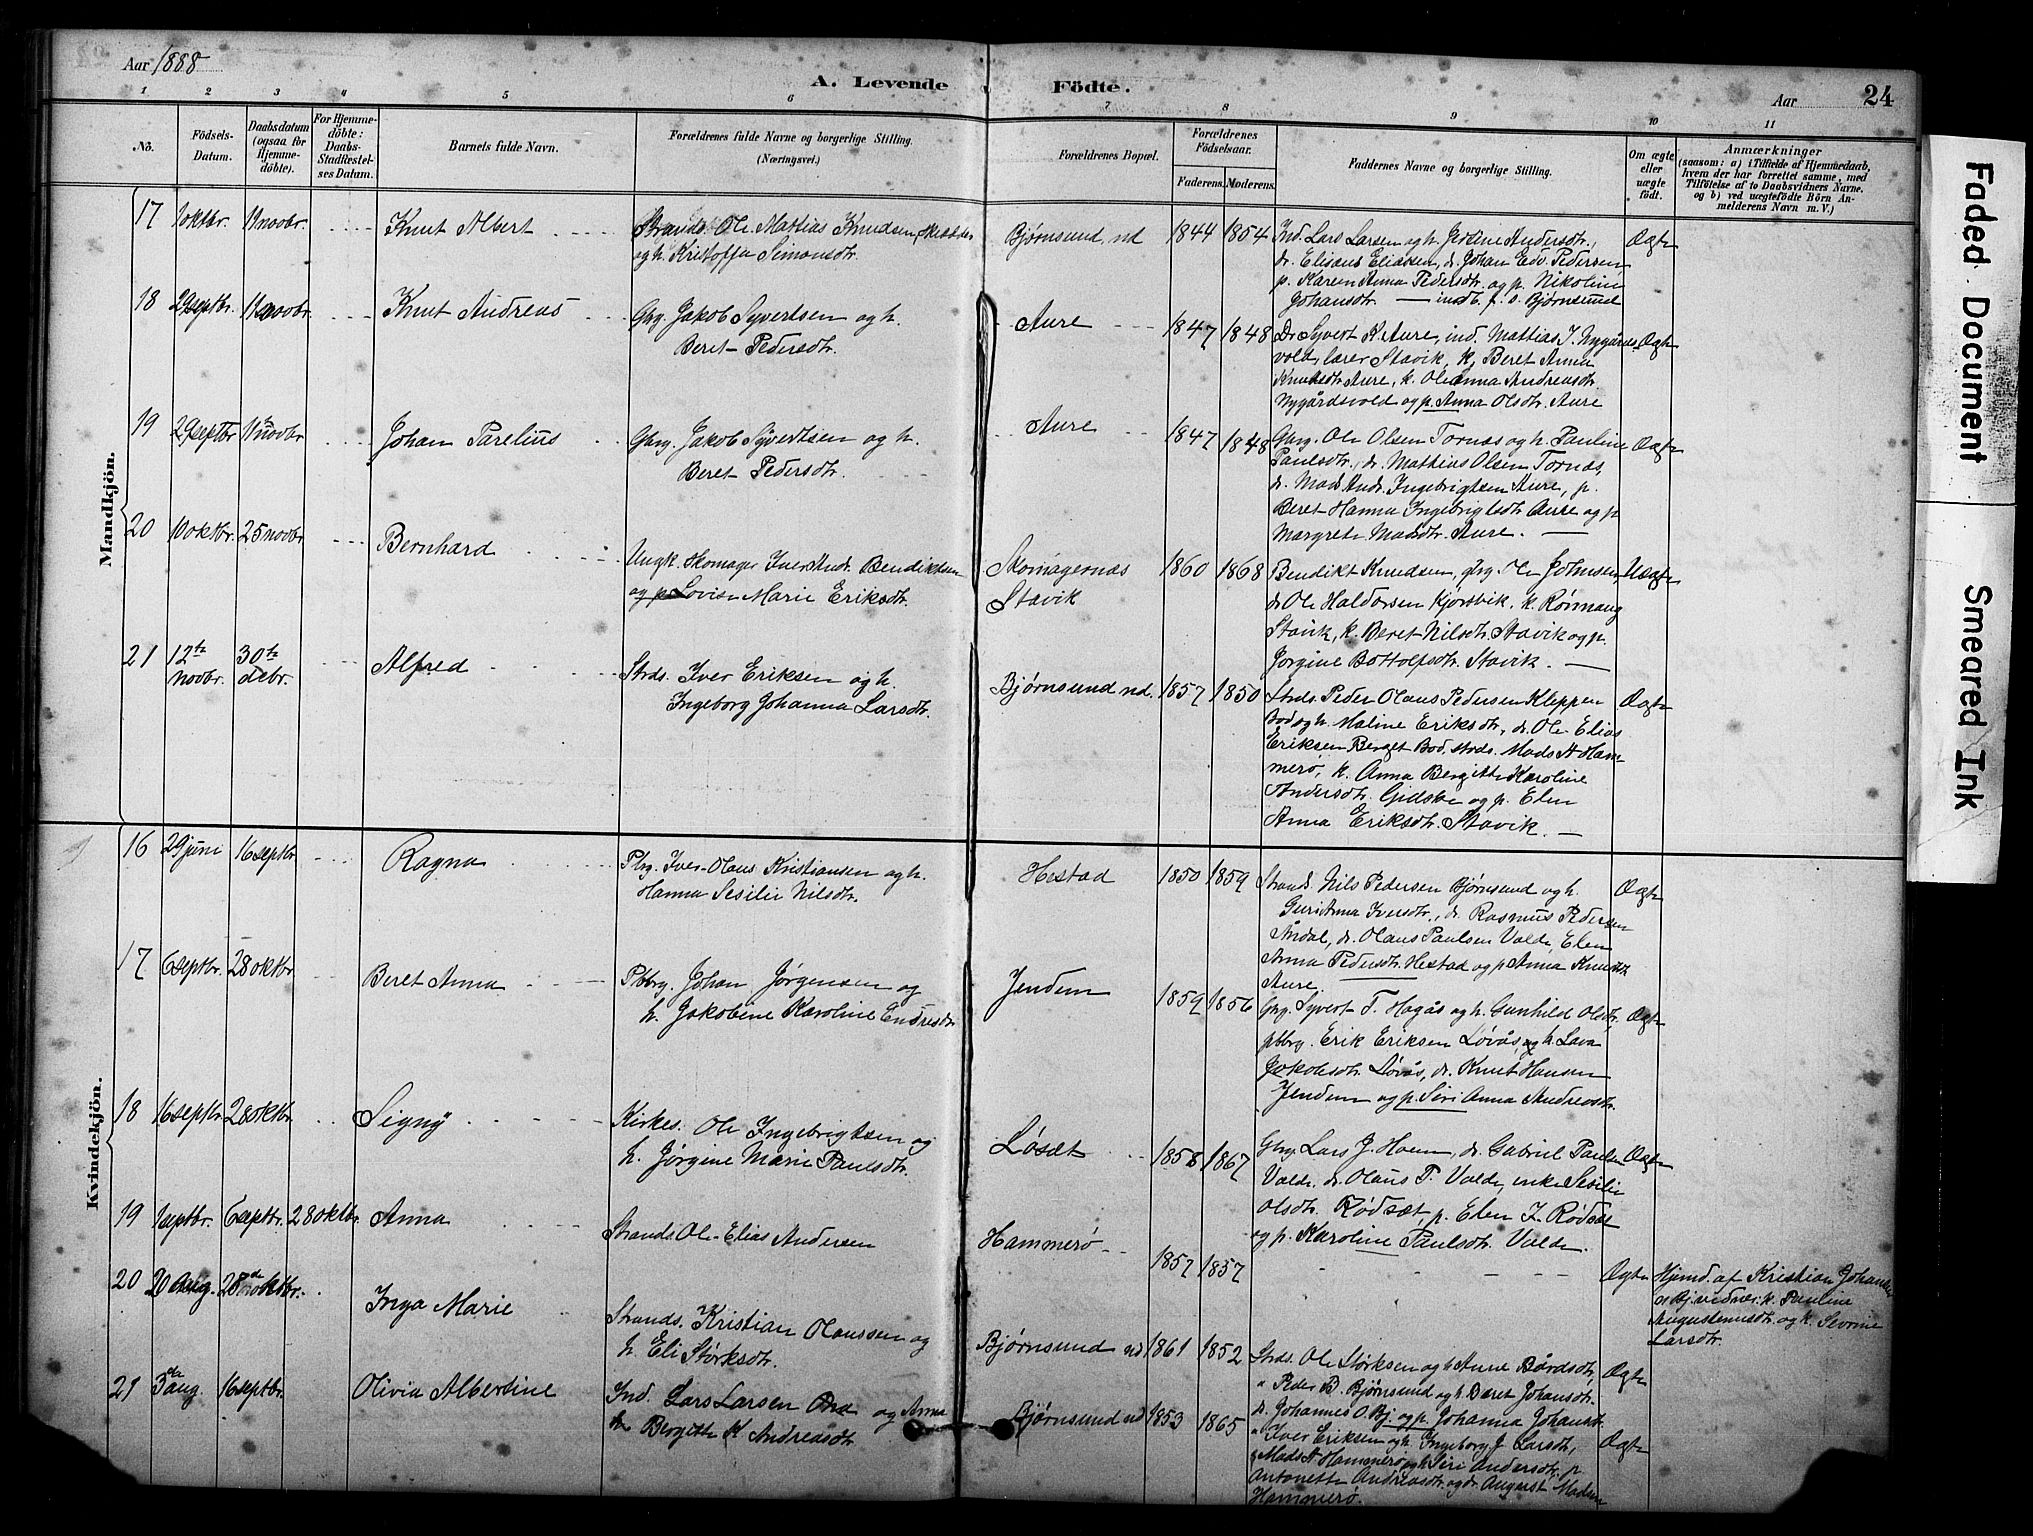 Aar 1888
A. Levende Födte.
Aar 24
1 2 3 4 5 6 7 8 9 10 11
No.
Födsels-Datum.
Daabsdatum (ogsaa for Hjemmedöbte).
For Hjemmedöbte: Daabs-Stadfæstelses Datum.
Barnets fulde Navn.
Forældrenes fulde Navne og borgerlige Stilling. (Næringsvei.)
Forældrenes Bopæl.
Forældrenes Födselsaar.
Faderens. Moderens.
Faddernes Navne og borgerlige Stilling.
Om ægte eller uægte födt.
Anmærkninger
(saasom: a) i Tilfælde af Hjemmedaab, hvem der har forrettet samme, med Tilföielse af to Daabsvidners Navne. og b) ved uægtefödte Börn Anmelderens Navn m. V.)
Mandkjön.
17 1 oktbr. 11 novbr. Knut Albert
Strands. Ole Mattias Knudsen,
og h. Kristoffa Simonsdtr.
Bjørnsund nd 1844 1854
Ind. Lars Larsen og h. Jestine Andersdtr.,
dr. Elisæus Eliassen, dr. Johan Edv. Pedersen,
p. Karen Anna Pedersdtr. og p. Nikoline
Johansdtr. — indb. f. s. Bjørnsund
Ægte
18 29 septbr. 11 novbr. Knut Andreas
Gbrg. Jakob Syvertsen og h.
Beret Pedersdtr.
Aure 1847 1848
Dr. Syvert K. Aure, ind. Mattias J. Nygårds
vold, lærer Stavik, k. Beret Anna
Knutsdtr. Aure, k. Oleanna Andreasdtr.
Nygårdsvold og p. Anna Olsdtr. Aure
Ægte
19 29 septbr. 11 novbr. Johan Parelius
Gbrg. Jakob Syvertsen og h.
Beret Pedersdtr.
Aure 1847 1848
Gbrg. Ole Olsen Tornæs og h. Pauline
Paulsdtr., dr. Mathias Olsen Tornæs,
dr. Mads Andr. Ingebrigtsen Aure, p.
Beret Hanna Ingebrigtsdtr. Aure og p.
Margrete Madsdtr. Aure. —
Ægte
20 10 oktbr. 25 novbr. Bernhard
Ungk. Skomager Iver Andr. Bendiktsen
og p. Lovise Marie Eriksdtr.
Skomagernæs
Stavik
1860 1868
Bendikt Knudsen, gbrg. Ole Johnsen,
dr. Ole Haldorsen Kjørsvik, k. Rønnaug
Stavik, k. Beret Nilsdtr. Stavik og p.
Jørgine Bottolfsdtr. Stavik. —
Uægte
21 12te novbr. 30te debr. Alfred
Strds. Iver Eriksen og h.
Ingeborg Johanna Larsdtr.
Bjørnsund nd. 1857 1850
Strds. Peder Olaus Pedersen Kleppen
Bod og h. Maline Eriksdtr., dr. Ole Elias
Eriksen Berget Bod, strds. Mads A. Ham-
merø, k. Anna Bergitte Karoline
Andersdtr. Gidske og p. Elen
Anna Eriksdtr. Stavik. —
Ægte
Kvindekjön.
16 29 juni 16 septbr. Ragna
Pbrg. Iver Olaus Kristiansen og h.
Hanna Sesilie Nilsdtr.
Hestad 1850 1859
Strands. Nils Pedersen Bjørnsund og h.
Guri Anna Iversdtr., dr. Rasmus Pedersen
Årdal, dr. Olaus Paulsen Valde, Elen
Anna Pedersdtr. Hestad og p. Anna Knutsdtr.
Aure.
Ægte
17 6 septbr. 28 oktbr. Beret Anna
Pbbrg. Johan Jørgensen og
h. Jakobine Karoline Endresdtr.
Jendem 1859 1856
Gbrg. Syvert T. Hagås og h. Gunhild Olsdtr.,
pbbrg. Erik Eriksen Løvås, og h. Lava
Jakobsdtr. Løvås, dr. Knut Hansen
Jendem og p. Siri Anna Andreasdtr.
Ægte
18 16 septbr. 28 oktbr. Signy
Kirkes. Ole Ingebrigtsen og
h. Jørgine Marie Paulsdtr.
Løsæt 1858 1867
Gbrg. Lars J. Hoem, dr. Gabriel Paulsen
Valde, dr. Olaus P. Valde, enke Sesilie
Olsdtr. Rødsæt, p. Elen I. Rødsæt
og p. Karoline Paulsdtr. Valde.
Ægte
19 1 septbr. 6 septbr. 28 oktbr. Anna
Strands Ole Elias Andersen
Hammerø 1857 1857
Ægte
Hjemd. af Kristian Johansen
Bj. vidner: k. Pauline
Augustinusdtr. og k. Severine
Larsdtr.
20 20 aug. 28de oktbr. Inga Marie
Strands. Kristian Olaussen og
h. Eli Størksdtr.
Bjørnsund nd 1861 1852
Strds. Ole Størksen og h. Aure Bårdsdtr.,
" Peder B. Bjørnsund og h. Beret Johansdtr.
dr. Johannes O. Bj. og p. Johanna Johansdtr.
Ægte
21 3die aug. 16 septbr. Olivia Albertine
Ind. Lars Larsen og Anna
Bergitte K. Andreasdtr.
Bjørnsund nd 1853 1865
" Iver Eriksen og h. Ingeborg J. Larsdtr.,
Mads A. Hammerø og h. Siri Andersdtr. p.
Antonette Andreasdtr. og dr. August Madsen
Hammerø.
Ægte
Faded Document
Smeared Ink